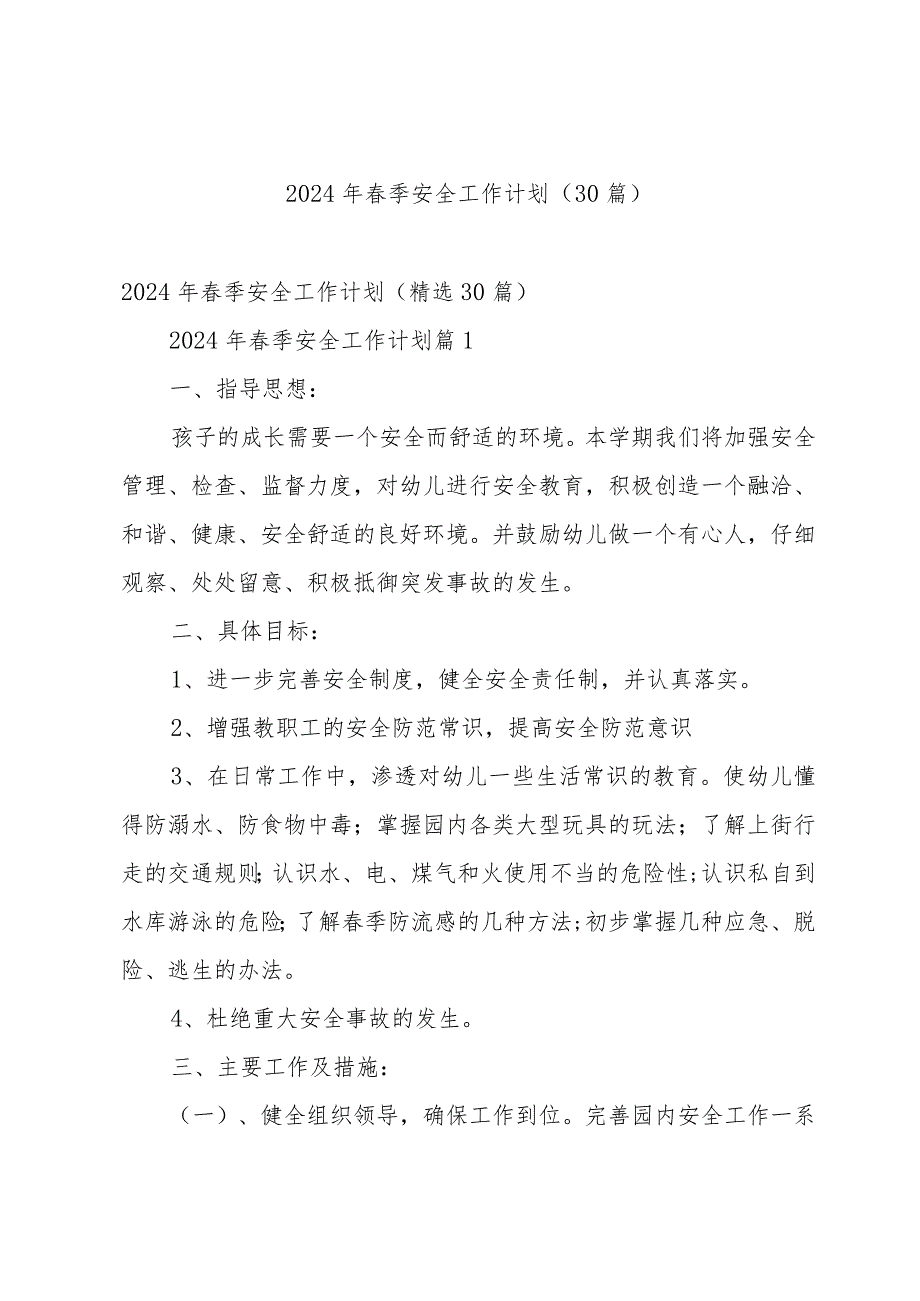 2024 年春季安全工作计划（30 篇）
2024 年春季安全工作计划（精选 30 篇）
2024 年春季安全工作计划篇 1
一、指导思想：
孩子的成长需要一个安全而舒适的环境。本学期我们将加强安全
管理、检查、监督力度，对幼儿进行安全教育，积极创造一个融洽、
和谐、健康、安全舒适的良好环境。并鼓励幼儿做一个有心人，仔细
观察、处处留意、积极抵御突发事故的发生。
二、具体目标：
1、进一步完善安全制度，健全安全责任制，并认真落实。
2、增强教职工的安全防范常识，提高安全防范意识
3、在日常工作中，渗透对幼儿一些生活常识的教育。使幼儿懂
得防溺水、防食物中毒；掌握园内各类大型玩具的玩法；了解上街行
走的交通规则；认识水、电、煤气和火使用不当的危险性；认识私自到
水库游泳的危险；了解春季防流感的几种方法；初步掌握几种应急、脱
险、逃生的办法。
4、杜绝重大安全事故的发生。
三、主要工作及措施：
（一）、健全组织领导，确保工作到位。完善园内安全工作一系